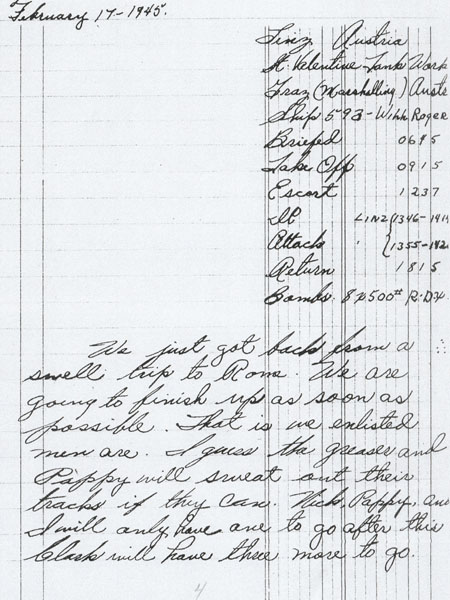 February 17-1945.
Linz Austria
St. Valentine Tank Work
Graz (Marshalling) Austr
Ship 593 - Will Roger
Briefed 0645
Take Off 0915
Escort 1237
IP LINZ (1346-141
Attack " (1355-142
Return 1815
Bombs. 8x500# RDX
We just got back from a
swell trip to Rome. We are
going to finish up as soon as
possible. That is we enlisted
men are. I guess the greaser and
Pappy will sweat out their
tracks if they can. Nick, Pappy, and
I will only have one to go after this
Clark will have three more to go.
4